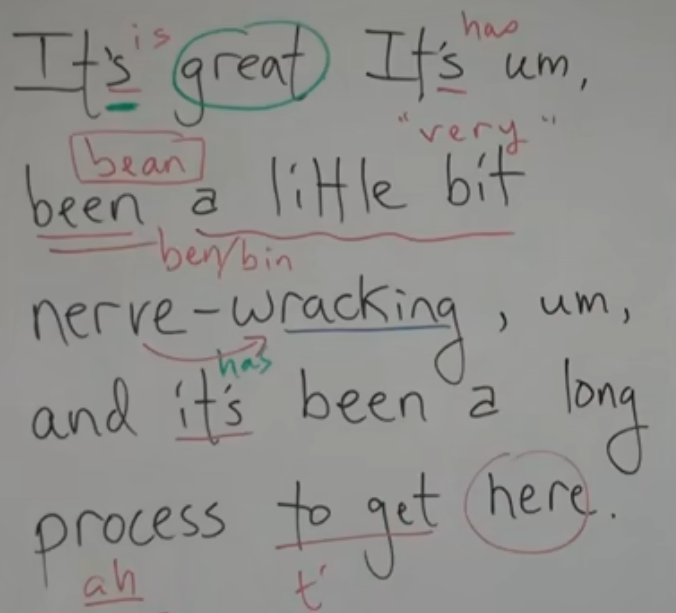 is has
It's great It's um,
bean "very"
been a little bit
ben/bin
nerve-wracking, um,
has
and it's been a long
process to get here.
ah t'